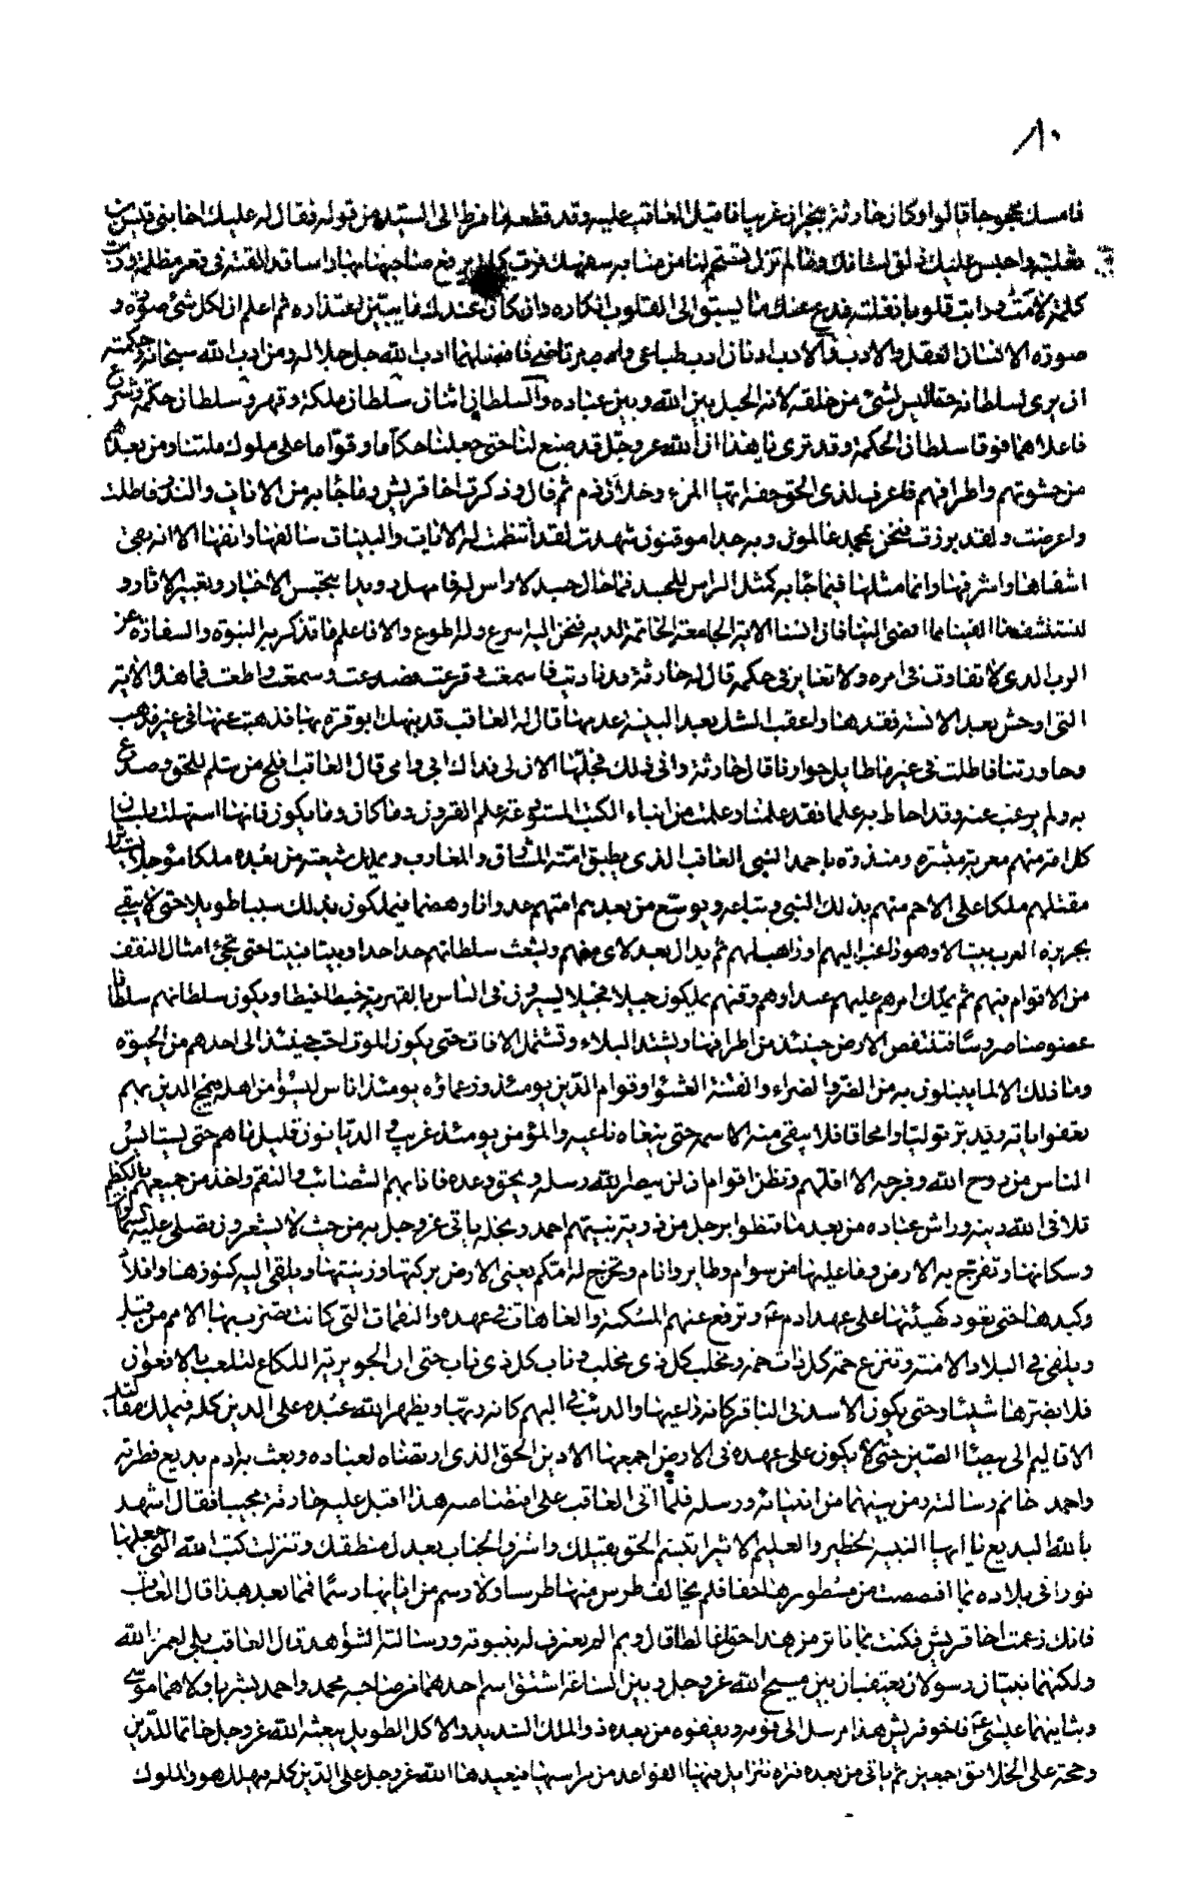 ٨٠
فامسك محجوجا قالوا وكان حارثة بنجران غريبا فاقبل العاقب عليه وقد قطعه ما فرط الى السيد من قوله فقال له عليك اخا بنى قيس بن
ثعلبة واحبس عليك ذلق لسانك وما لم تزل تستحم لنا من مثابة سفهك فرب كلمة يرفع صاحبها بها راسا قد القته فى قعر مظلمة ورب
كلمة لامت ورابت قلوبا نغلة فدع عنك ما يسبق الى القلوب انكاره وان كان عندك ما يبين اعتذاره ثم اعلم ان لكل شئ صورة و
صورة الانسان العقل والادب والادب ادبان ادب طباعى و مرتاضى فافضلهما ادب الله جل جلاله ومن ادب الله سبحانه وحكمته
ان يرى لسلطانه حقا ليس لشئ من خلقه لانه الحبل بين الله وبين عباده والسلطان اثنان سلطان ملكة وقهر وسلطان حكمة وشرع
فاعلاهما فوقا سلطان الحكمة وقد ترى يا هذا ان الله عز وجل قد صنع لنا حتى جعلنا حكاما وقواما على ملوك ملتنا ومن بعدهم
من حشوتهم واطرافهم فاعرف لذى الحق حقه ايها المرء وخلاك ذم ثم قال وذكرت اخا قريش وما جاء به من الايات والنذر فاطلت
واعرضت ولقد برزت فنحن بمحمد عالمون وبه جدا موقنون شهدت لقد انتظمت له الايات والبينات سالفها وآنفها الا آية هى
اشفاها واشرفها وانما مثلها فيما جاء به كمثل الراس للجسد فما حال جسد لا راس له فامهل رويدا نتجسس الاخبار ونعتبر الاثار و
لنستشف ما الفينا مما افضى الينا فان انسنا الاية الجامعة الخاتمة لديه فنحن اليه اسرع وله اطوع والا فاعلم ما تذكر به النبوة والسفارة عن
الرب الذى لا تفاوت فى امره ولا تغاير فى حكمه قال له حارثة قد ناديت فاسمعت وقرعت فصدعت وسمعت واطعت فما هذه الاية
التى اوحش بعد الانسة فقدها واعقب الشك بعد البينة عدمها قال له العاقب قد اثلجك ابو قرة بها فذهبت عنها فى غير مذهب
وحاورتنا فاطلت فى غير ما طائل حوارنا قال حارثة وانى ذلك فجلها الان لى فداك ابى وامى قال العاقب افلح من سلم للحق وصدع
به ولم يرغب عنه وقد احاط به علما فقد علمنا وعلمت من انباء الكتب المستودعة علم القرون وما كان وما يكون فانها استهلت بلسان
كل امة منهم معربة مبشرة ومنذرة باحمد النبى العاقب الذى يطبق امته المشارق والمغارب ويملك شيعته من بعده ملكا مؤجلا
مقتبلهم ملكا على الاحم منهم بذلك النبى وتباعة ويوسع من بعدهم امتهم عدوانا وهضما فيملكون بذلك سبتا طويلا حتى لا يبقى
بجزيرة العرب بيت الا وهو راغب اليهم او راهب لهم ثم يدال بعد لاى منهم ويشعث سلطانهم حدا حدا وبيتا فبيتا حتى تجئ امثال النغف
من الاقوام فيهم ثم يملك امرهم عليهم عبداؤهم وقنهم يملكون جيلا فجيلا يسيرون فى الناس بالقعسرية خبطا خبطا ويكون سلطانهم سلطانا
عضوضا ضروسا فتنقص الارض حينئذ من اطرافها ويشتد البلاء وتشتمل الافات حتى يكون الموت احب حينئذ الى احدهم من الحيوة
وما ذلك الا لما يبتلون به من الضر والضراء والفتنة العشوا وقوام الدين يومئذ وزعماؤه يومئذ اناس ليسوا من اهله فيمج الدين بهم
وتعفوا آياته ويدبر توليا وامحاقا فلا يبقى منه الا اسمه حتى ينعاه ناعيه والمؤمن يومئذ غريب والديانون قليل ما هم حتى يستايس
الناس من روح الله وفرجه الا اقلهم وتظن اقوام ان لن ينصر الله رسله ويحق وعده فاذا بهم الشصائب والنقم واخذ من جميعهم بالكظم
تلافى الله دينه وراش عباده من بعد ما قنطوا برجل من ذرية نبيهم احمد ونجله ياتى عز وجل به من حيث لا يشعرون يصلى عليه السموات
وسكانها وتفرح به الارض وما عليها من سوام وطاير وانام وتخرج له امكم يعنى الارض بركتها وزينتها ويلقى اليه كنوزها وافلاذ
وكبدها حتى يعود كهيئتها على عهد ادم ع وترفع عنهم المسكنة والعاهات فى عهده والنقمات التى كانت تضرب بها الامم من قبل
ويلقى فى البلاد الامنة وتنزع حمة كل ذات حمة ومخلب كل ذى مخلب وناب كل ذى ناب حتى ان الجويرية اللكاع لتلعب بالافعوان
فلا يضرها شيئا وحتى يكون الاسد فى الباقر كانه راعيها والذئب فى البهم كانه ربها ويظهر الله عبده على الدين كله فيملك مقاليد
الاقاليم الى بيضاء الصين حتى لا يكون على عهده فى الارض اجمعها الا دين الحق الذى ارتضاه لعباده وبعث به ادم بديع فطرته
واحمد خاتم رسالته ومن بينهما من انبيائه ورسله فلما اتى العاقب على اقتصاصه هذا اقبل عليه حارثة مجيبا فقال اشهد
بالله البديع يا ايها النبيه الخطير والعليم الاثير لقد ابتسم الحق بقيلك واشرق الجناب بعدل منطقك وتنزلت كتب الله التى جعلها
نورا فى بلاده بما اقتصصت من مسطورها حقا فلم يخالف طرس منها طرسا ولا رسم من اياتها رسما فما بعد هذا قال العاقب
فانك زعمت اخا قريش فكنت بما تاثر من هذا حق غالط قال وبم الم يعترف له بنبوته ورسالته الشواهد قال العاقب بلى لعمر الله
ولكنهما نبيان رسولان يعتقبان بين مسيح الله عز وجل وبين الساعة اشتق اسم احدهما من صاحبه محمد واحمد بشر باولاهما موسى
وبثانيهما عيسى ع فاخو قريش هذا مرسل الى قومه ويقفوه من بعده ذو الملك الشديد والاكل الطويل يبعثه الله عز وجل خاتما للدين
وحجة على الخلائق اجمعين ثم ياتى من بعده فترة تتزايل فيها القواعد من مراسيها فيعيدها الله عز وجل على الدين كله فيملك هو والملوك